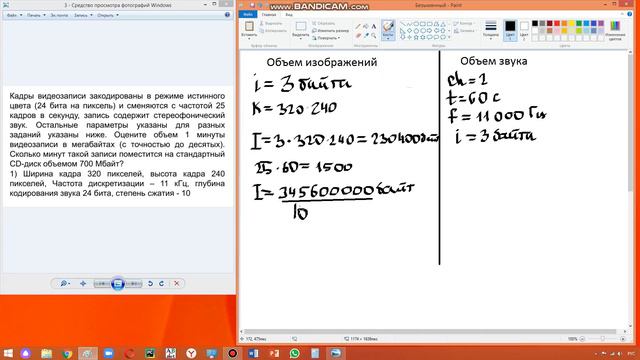 www.BANDICAM.com
3 - Средство просмотра фотографий Windows
Безымянный - Paint
Буфер обмена
Изображение
Инструменты
Фигуры
Цвета
Кадры видеозаписи закодированы в режиме истинного
цвета (24 бита на пиксель) и сменяются с частотой 25
кадров в секунду, запись содержит стереофонический
звук. Остальные параметры указаны для разных
заданий указаны ниже. Оцените объем 1 минуты
видеозаписи в мегабайтах (с точностью до десятых).
Сколько минут такой записи поместится на стандартный
CD-диск объемом 700 Мбайт?
1) Ширина кадра 320 пикселей, высота кадра 240
пикселей, Частота дискретизации – 11 кГц, глубина
кодирования звука 24 бита, степень сжатия - 10
Объем изображений
i = 3 байта
K = 320·240
I = 3·320·240 = 230400 байт
25·60 = 1500
I = 345600000 байт
10
Объем звука
ch = 2
t = 60 c
f = 11 000 Гц
i = 3 байта
172, 475пкс
100%